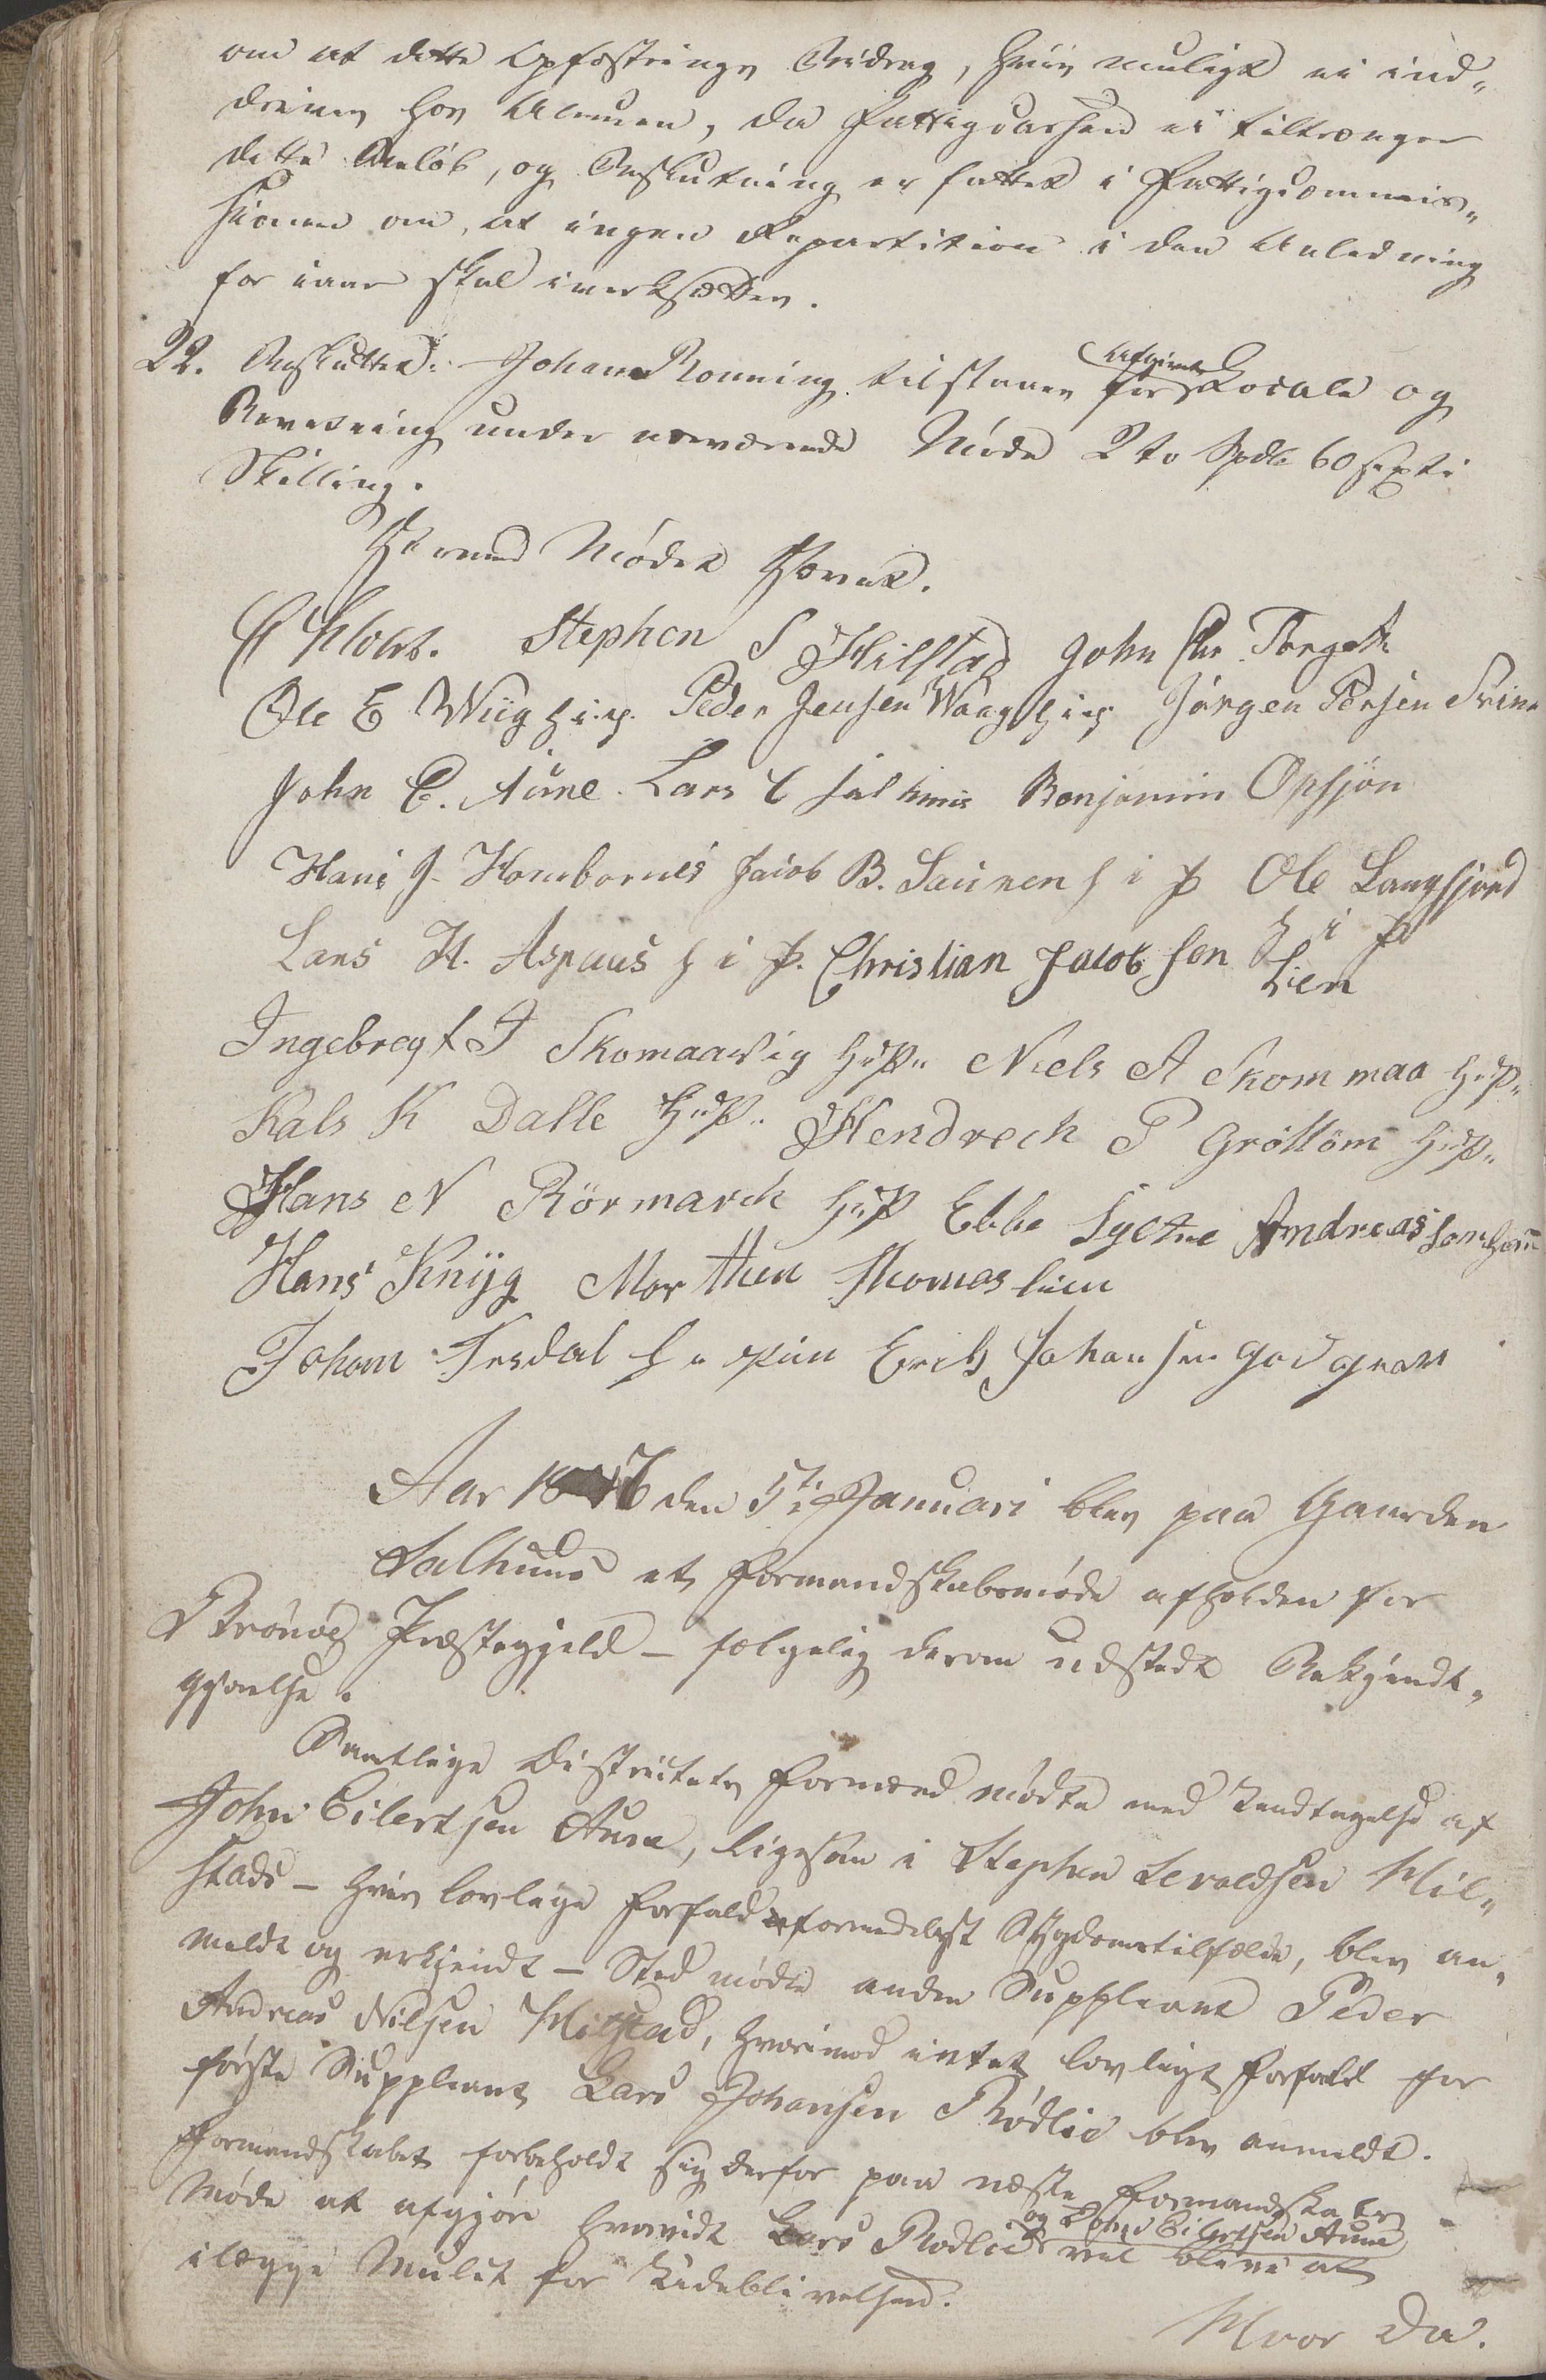 om at dette Opfostrings Bidrag, hvis muligt ei ind-
drives hos Almuen, da Fattigcassen ei tiltrænger
dette Beløb, og Beslutning er fattet i Fattigcommis-
sionen om, at ingen Repartition i den Anledning
for iaar skal iverksættes.
22. Besluttet: Johan Rønning tilstaaes for Locale og
Bevertning under nærværende Møde 2 to Spdlr 60 sexti
Skilling.
Hermed Mødet Hævet.
Stephen S Hilstad John Chr. Torget
Ole E Wiig h.i.p. Peder Jensen Waag h i p Jørgen Persen
John E. Aune. Lars C Benjamin Opsjøn
Hans J. Hombornes Jacob B. Saursen h i p Ole Langfjord
h i p
Lars H. Aspaas h i P. Christian Jacobsen Lien
Ingebregt I Skomaavig hiP. Niels A Skommaa hiP.
Kals K Dalle hiP. Hendrech P Grøttøm hiP.
Hans N Rörmarck hiP Ebbe Andreassen
Hans Knÿg Morthen Thomas
Johan h Erich Johansen
Aar den 5te Januari blev paa Gaarden
Salhuus et Formandskabsmøde afholden for
Brønøe Præstegjeld – følgelig derom udstedt Bekjendt-
gjørelse.
Samtlige Districtets Formænd mødte med Undtagelse af
John Eilertsen Aune, ligesom i Stephen Hil-
stads – hvis lovlige Forfald formedelst Sygdomstilfælde, blev an-
meldt og erkjendt – Sted mødte anden Suppleant Peder
Andreas Nilsen Hilstad, hvorimod intet lovligt Forfald for
første Suppleant Lars Johansen Rødlie blev anmeldt.
Formandskabet forbeholdt sig derfor paa næste Formandskabs
Møde at afgjøre hvorvidt Lars Rødlie og John Eilertsen Aune vil blive at
ilægge Mulct for Udeblivelsen.
Hvor da.